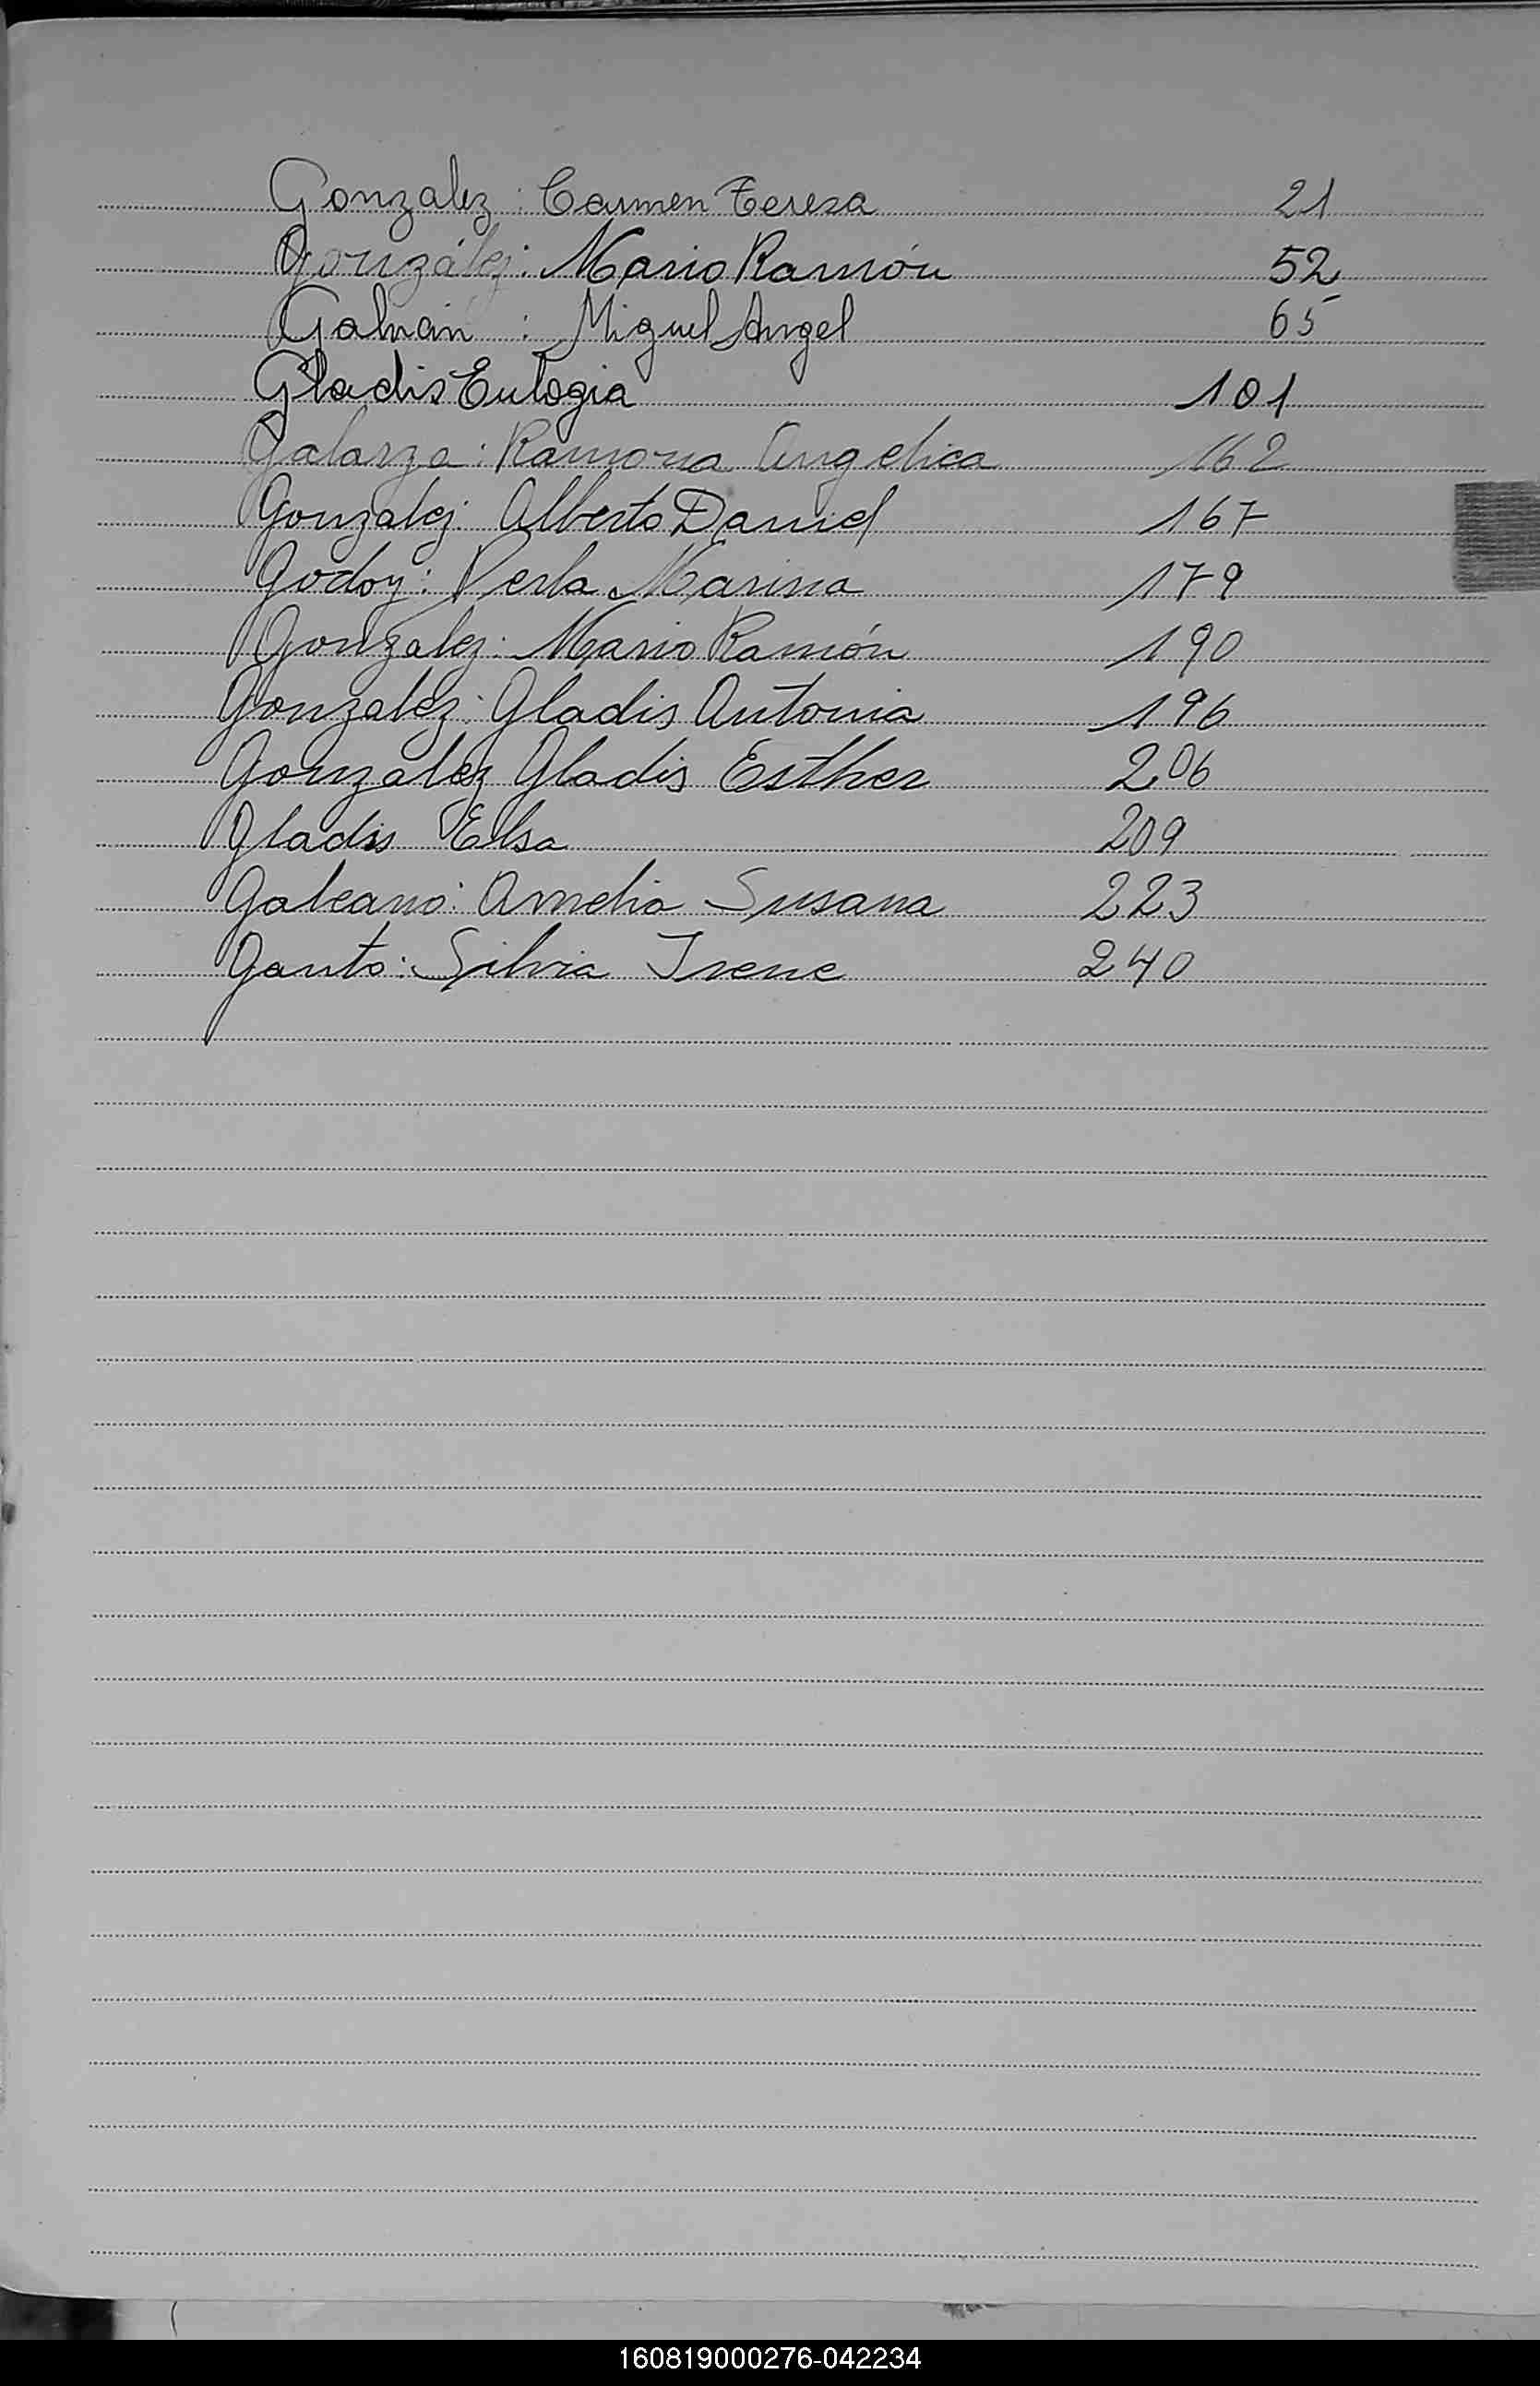 Gonzalez : Carmen Teresa 21
González : Mario Ramón 52
Galván : Miguel Angel 65
Gladis Eulogia 101
Galarza : Ramona Angelica 162
Gonzalez : Alberto Daniel 167
Godoy : Perla Marina 179
Gonzalez : Mario Ramón 190
Gonzalez : Gladis Antonia 196
Gonzalez Gladis Esther 206
Gladis Elsa 209
Galeano : Amelia Susana 223
Gauto : Silvia Irene 240
160819000276-042234